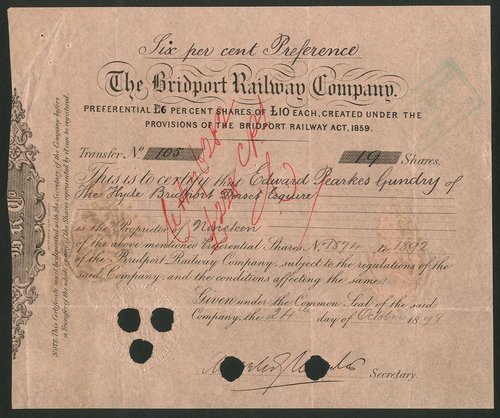 Six per cent Preference
The Bridport Railway Company.
PREFERENTIAL £6 PER CENT SHARES OF £10 EACH, CREATED UNDER THE
PROVISIONS OF THE BRIDPORT RAILWAY ACT. 1859.
Transfer No. 105 19 Shares.
This is to certify that Edward Pearkes Gundry of
The Hyde Bridport Dorset Esquire
is the Proprietor of Nineteen
of the above mentioned Preferential Shares No. 1874 to 1892
of the Bridport Railway Company, subject to the regulations of the
said Company, and the conditions affecting the same.
Given under the Common Seal of the said
Company, the 24th day of October 1898
Secretary.
NOTE. This Certificate must be deposited with the Secretary of the Company before
a Transfer of the whole or part of the Shares represented by it can be registered.